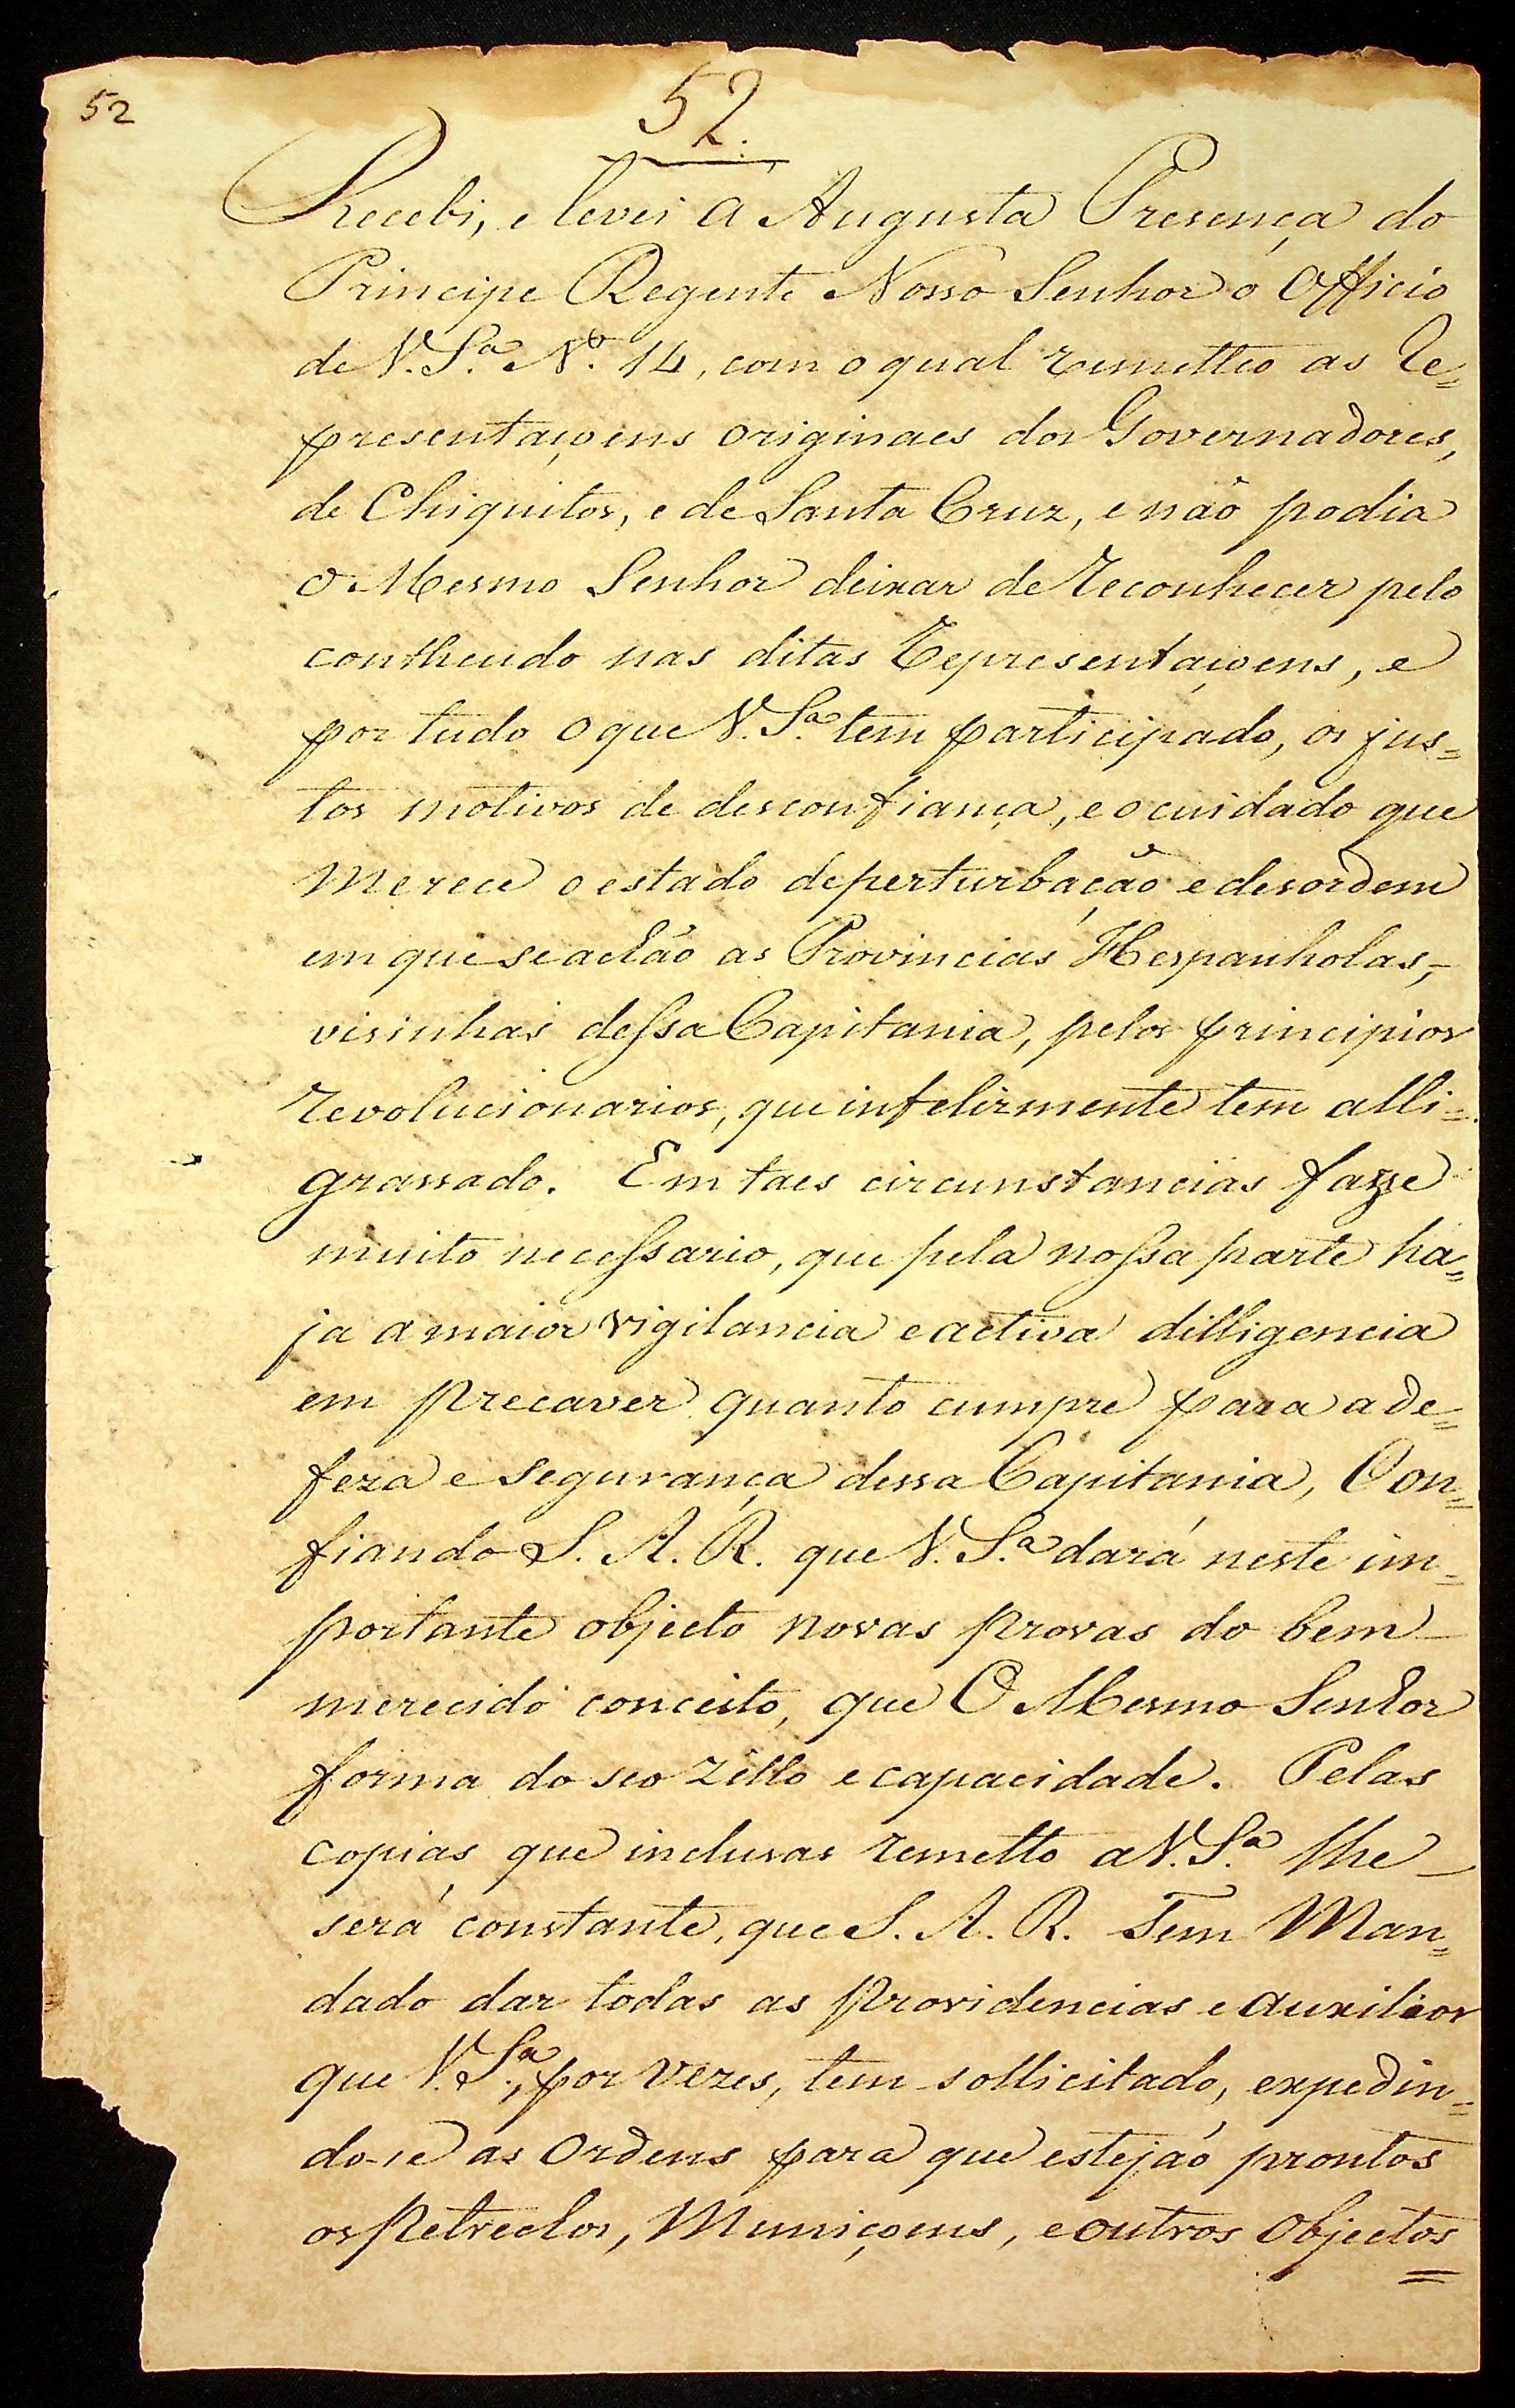 52
52.
Recebi, e levei a Augusta Presença do
Principe Regente Nosso Senhor o Officio
de V. S.ª N.º 14, com o qual remetteo as Re=
presentaçoens originaes dos Governadores,
de Chiquitos, e de Santa Cruz, e não podia
o Mesmo Senhor deixar de reconhecer pelo
contheudo nas ditas Representaçoens, e
por tudo o que V. S.ª tem participado, os jus=
tos motivos de desconfiança, e o cuidado que
merece o estado de perturbação e desordem
em que se achão as Provincias Hespanholas,
visinhas dessa Capitania, pelos principios
revolucionarios, que infelizmente tem alli=
grassado. Em taes circunstancias fazse
muito necessario, que pela nossa parte ha=
ja a maior vigilancia e activa dilligencia
em precaver quanto cumpre para a de=
feza e segurança dessa Capitania, Con=
fiando S. A. R. que V. S.ª dará neste im=
portante objecto novas provas do bem
merecido conceito, que O Mesmo Senhor
forma do seo zello e capacidade. Pelas
copias, que inclusas remetto a V. S.ª lhe
será constante, que S. A. R. Tem Man=
dado dar todas as providencias e auxilios
que V. S.ª, por vezes, tem sollicitado, expedin=
do-se as Ordens para que estejão prontos
os Petrechos, Muniçoens, e outros objectos